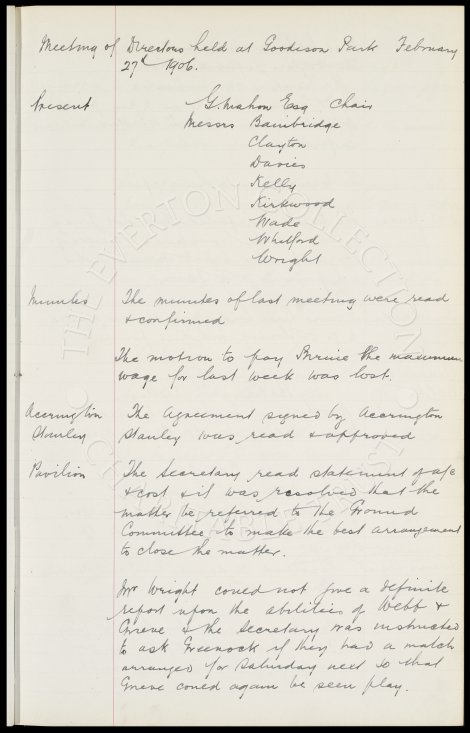 Meeting of Directors held at Goodison Park February
27th 1906.
Present G. Mahon Esq Chair
Messrs Bainbridge
Clayton
Davies
Kelly
Kirkwood
Wade
Whitford
Wright
Minutes The minutes of last meeting were read
& confirmed
The motion to pay the maximum
wage for last week was lost.
Accrington The Agreement signed by Accrington
Stanley Stanley was read & approved
Pavilion The Secretary read statement of a/c
& cost & it was resolved that the
matter be referred to the Ground
Committee to make the best arrangement
to close the matter.
Mr Wright could not give a definite
report upon the abilities of Webb &
Grieve & the Secretary was instructed
to ask Greenock if they had a match
arranged for Saturday next so that
Grieve could again be seen play.
THE EVERTON COLLECTION